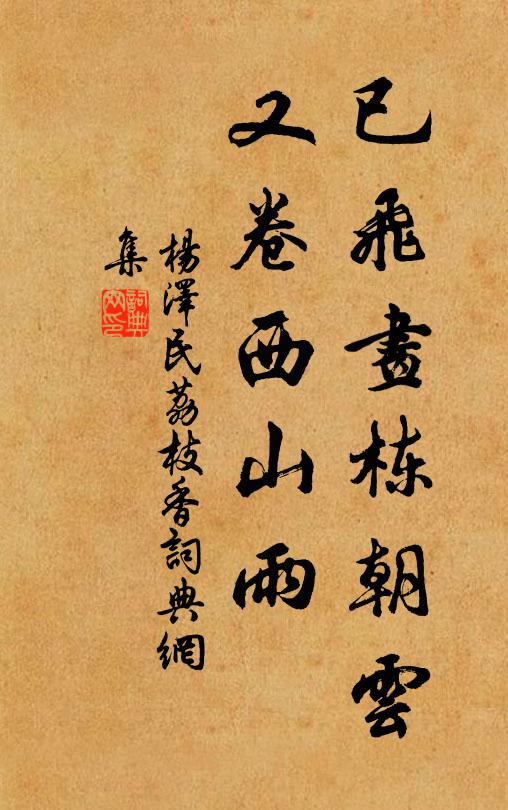 已飛畫棟朝雲
又卷西山雨
楊澤民荔枝香詞典網
集
詞典網印